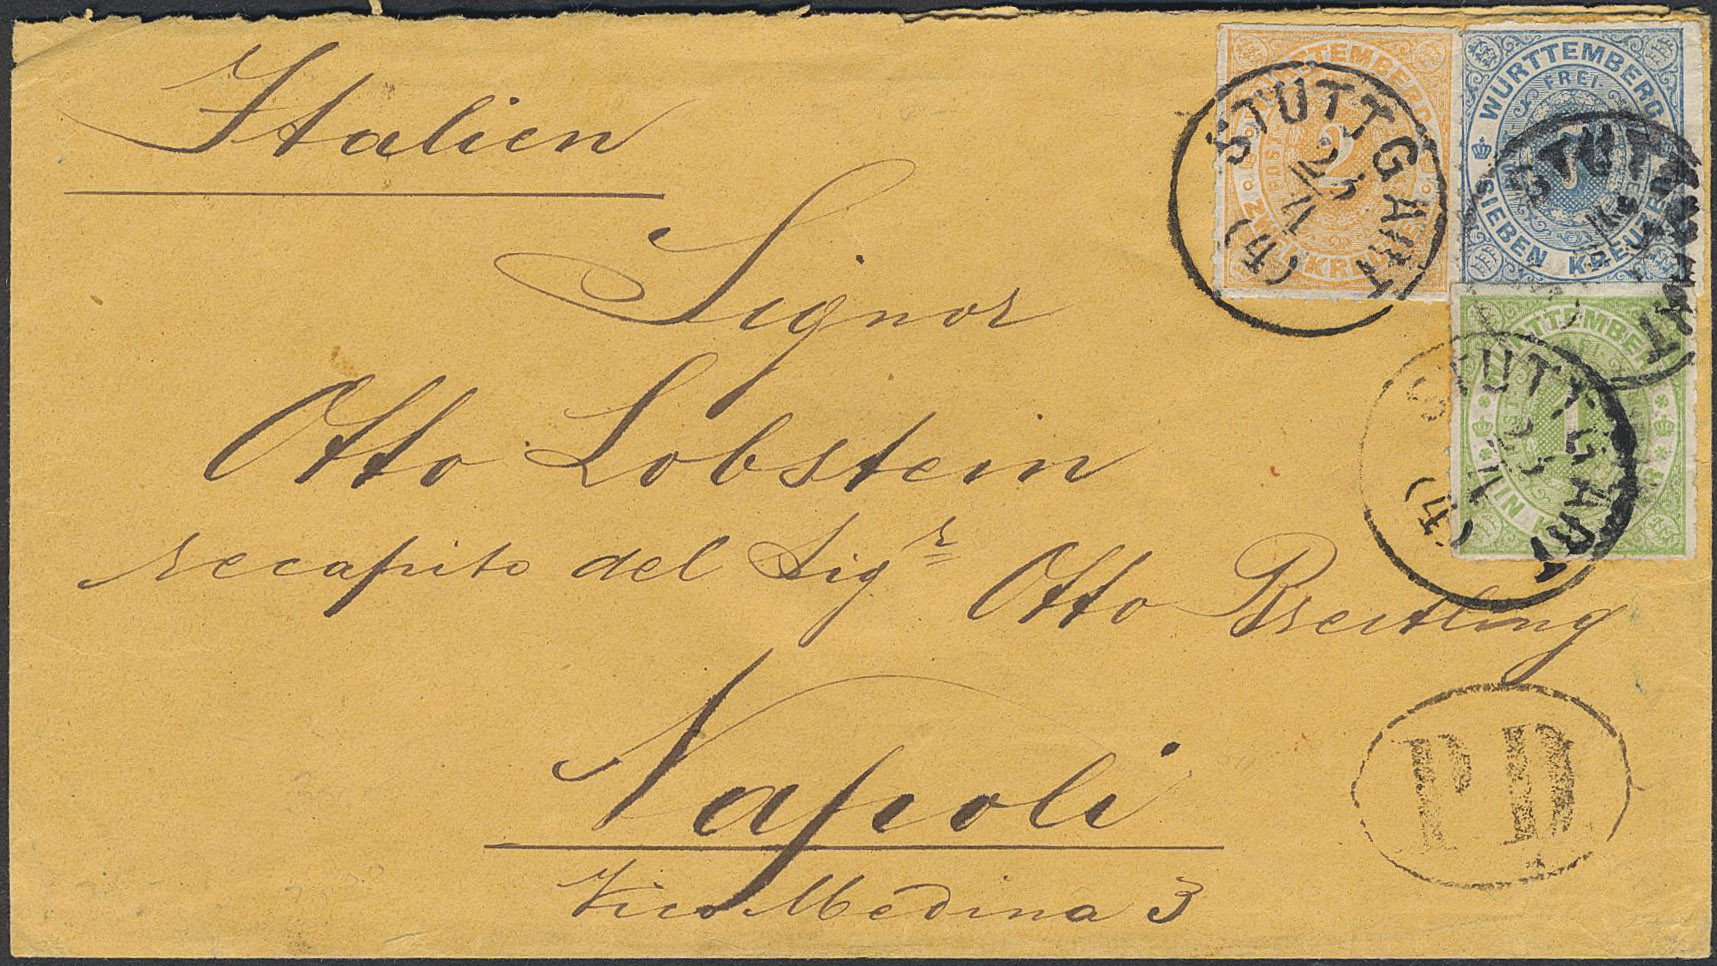 Italien
Signor
Otto Lobstein
recapito del Sigr Otto Breitling
Napoli
Vico Medina 3
WÜRTTEMBERG
2
ZWEI KREUZER
WÜRTTEMBERG
FREI
7
SIEBEN KREUZER
WÜRTTEMBERG
FREI
1
EIN KREUZER
STUTTGART
STUTTGART
STUTTGART
PD